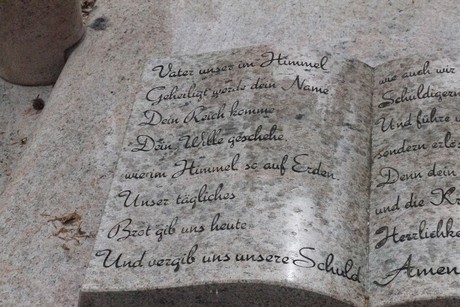 Vater unser im Himmel
Geheiligt werde dein Name
Dein Reich komme
Dein Wille geschehe
wie im Himmel so auf Erden
Unser tägliches
Brot gib uns heute
Und vergib uns unsere Schuld
wie auch wir
Schuldigern
Und führe
sondern erlös
Denn dein
und die Kr
Herrlichke
Amen